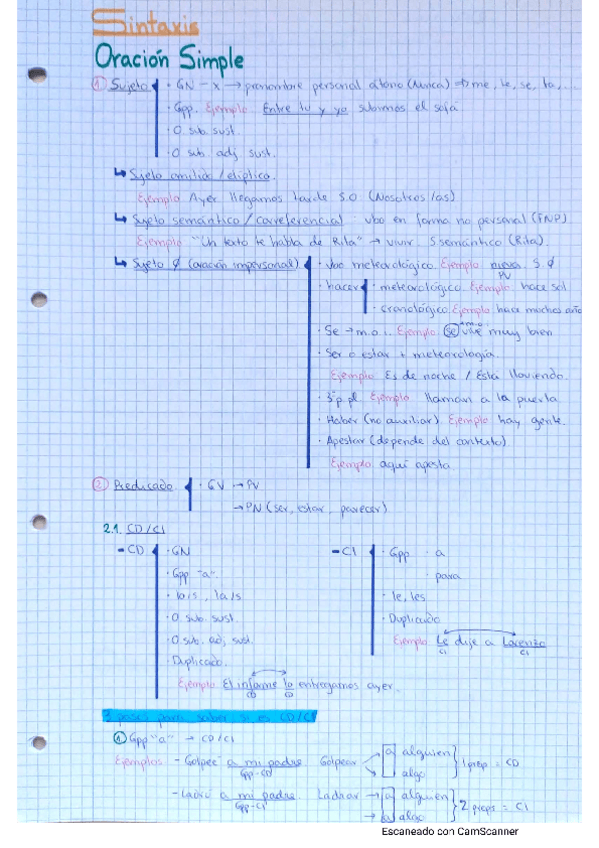 Sintaxis
Oración Simple
① Sujeto · GN - x → pronombre personal átono (nunca) → me, te, se, la,...
· Gpp. Ejemplo Entre tu y yo subimos el sofá
· O sub. sust.
· O sub. adj. sust.
↳ Sujeto omitido / elíptico.
Ejemplo Ayer llegamos tarde S.O (Nosotros/as)
↳ Sujeto semántico / correferencial : vbo en forma no personal (FNP)
Ejemplo "Un texto te habla de Rita" → vivir. S semántico (Rita).
↳ Sujeto ø (oración impersonal) · vbo meteorológico Ejemplo nieva S. Ø
PV
· hacer · meteorológico Ejemplo hace sol
· cronológico Ejemplo hace muchos año
· Se → m.o.i. Ejemplo se vive muy bien
m.o.i.
· Ser o estar + meteorología.
Ejemplo Es de noche / Está lloviendo.
· 3ªp pl Ejemplo llaman a la puerta
· Haber (no auxiliar) Ejemplo hay gente.
· Apestar (depende del contexto)
Ejemplo aquí apesta.
② Predicado · GV → PV
→ PN (ser, estar, parecer)
2.1. CD/CI
- CD · GN
· Gpp "a".
· lo/s, la/s
· O sub. sust.
· O sub. adj. sust.
· Duplicado.
Ejemplo El informe lo entregamos ayer.
CD CD
- CI · Gpp · a
· para
· le, les
· Duplicado
Ejemplo Le dije a Lorenzo
CI CI
2 pasos para saber si es CD/CI
① Gpp "a" → CD/CI
Ejemplos - Golpeé a mi padre. Golpear a alguien } 1 prep = CD
Gpp-CD algo
- Ladró a mi padre. Ladrar → a alguien } 2 preps = CI
Gpp-CI → a algo
Escaneado con CamScanner